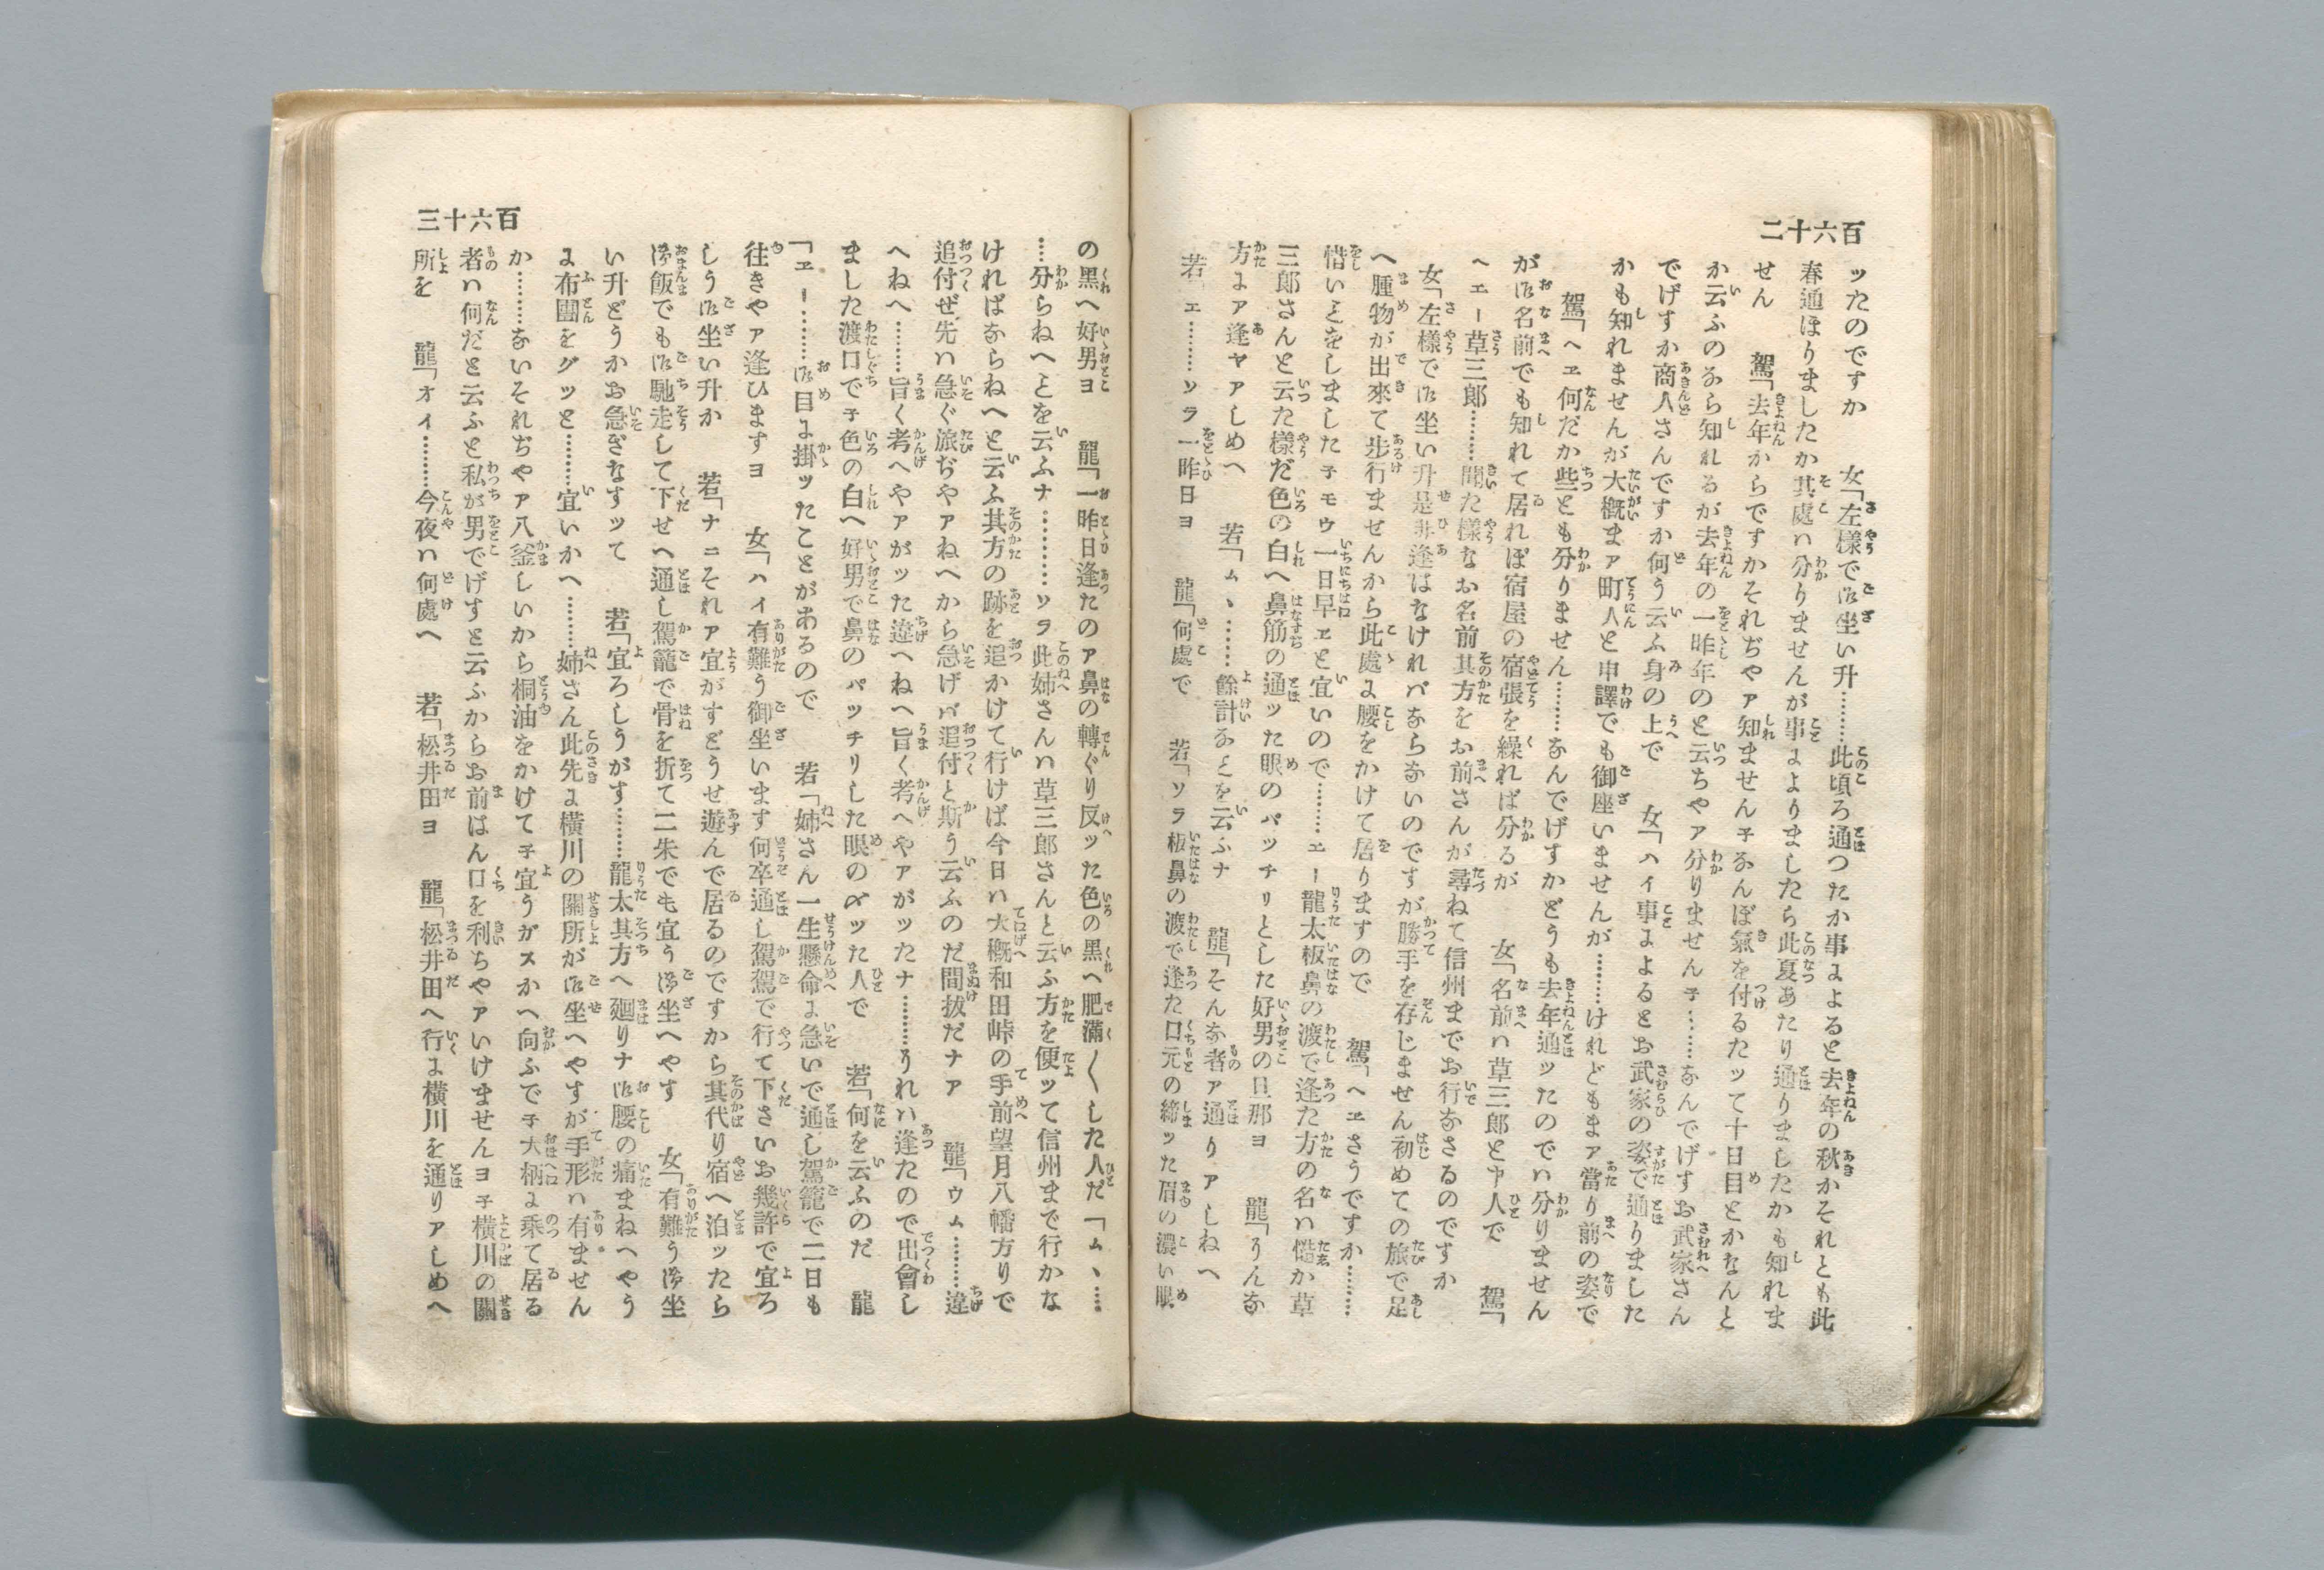 百六十二
ッたのですか　女「左樣で御坐い升………此頃ろ通つたか事によると去年の秋かそれとも此
春通ほりましたか其處ハ分りませんが事によりましたら此夏あたり通りましたかも知れま
せん　駕「去年からですかそれぢやァ知ませんネなんぼ氣を付るたッて十日目とかなんと
か云ふのなら知れるが去年の一昨年のと云ちやァ分りませんネ……なんでげすお武家さん
でげすか商人さんですか何う云ふ身の上で　女「ハイ事によるとお武家の姿で通りました
かも知れませんが大概まァ町人と申譯でも御座いませんが………けれどもまァ當り前の姿で
駕「ヘヱ何だか些とも分りません………なんでげすかどうも去年通ッたのでハ分りません
が御名前でも知れて居れば宿屋の宿張を繰れば分るが　女「名前ハ草三郎と申人で　駕「
ヘエー草三郎………聞た樣なお名前其方をお前さんが尋ねて信州までお行なさるのですか
女「左樣で御坐い升是非逢はなけれバならないのですが勝手を存じません初めての旅で足
へ腫物が出來て歩行ませんから此處に腰をかけて居りますので　駕「ヘヱさうですか………
惜いことをしましたネモウ一日早ヱと宜いので………エー龍太板鼻の渡で逢た方の名ハ慥か草
三郎さんと云た樣だ色の白へ鼻筋の通ッた眼のパッチリとした好男の旦那ヨ　龍「うんな
方にァ逢ヤアしめへ　若「ム、……餘計なことを云ふナ　龍「そんな者ァ通りアしねへ
若「エ………ソラ一昨日ヨ　龍「何處で　若「ソラ板鼻の渡で逢た口元の締ッた眉の濃い眼
百六十三
の黒へ好男ヨ　龍「一昨日逢たのァ鼻の轉ぐり反ッた色の黒へ肥滿〱した人だ「ム、……
…分らねへことを云ふナ………ソラ此姉さんハ草三郎さんと云ふ方を便ッて信州まで行かな
ければならねへと云ふ其方の跡を追かけて行けば今日ハ大概和田峠の手前望月八幡方りで
追付ぜ先ハ急ぐ旅ぢやアねへから急げバ追付と斯う云ふのだ間拔だナア　龍「ウム………違
へねへ………旨く考へやァがッた違へねへ旨く考へやァがッたナ………うれハ逢たので出會し
ました渡口でネ色の白へ好男で鼻のパッチリした眼の〆ッた人で　若「何を云ふのだ　龍
「エー………御目に掛ッたことがあるので　若「姉さん一生懸命に急いで通し駕籠で二日も
往きやァ逢ひますヨ　女「ハイ有難う御坐います何卒通し駕駕で行て下さいお幾許で宜ろ
しう御坐い升か　若「ナニそれァ宜がすどうせ遊んで居るのですから其代り宿へ泊ッたら
御飯でも御馳走して下せへ通し駕籠で骨を折て二朱でも宜う御坐へやす　女「有難う御坐
い升どうかお急ぎなすッて　若「宜ろしうがす………龍太其方へ廻りナ御腰の痛まねへやう
に布團をグッと………宜いかへ………姉さん此先に横川の關所が御坐へやすが手形ハ有ません
か………ないそれぢやァ八釜しいから桐油をかけてネ宜うガスかへ向ふでネ大柄に乘て居る
者ハ何だと云ふと私が男でげすと云ふからお前はん口を利ちやァいけませんヨネ横川の關
所を　龍「オイ………今夜ハ何處へ　若「松井田ヨ　龍「松井田へ行に横川を通りアしめへ